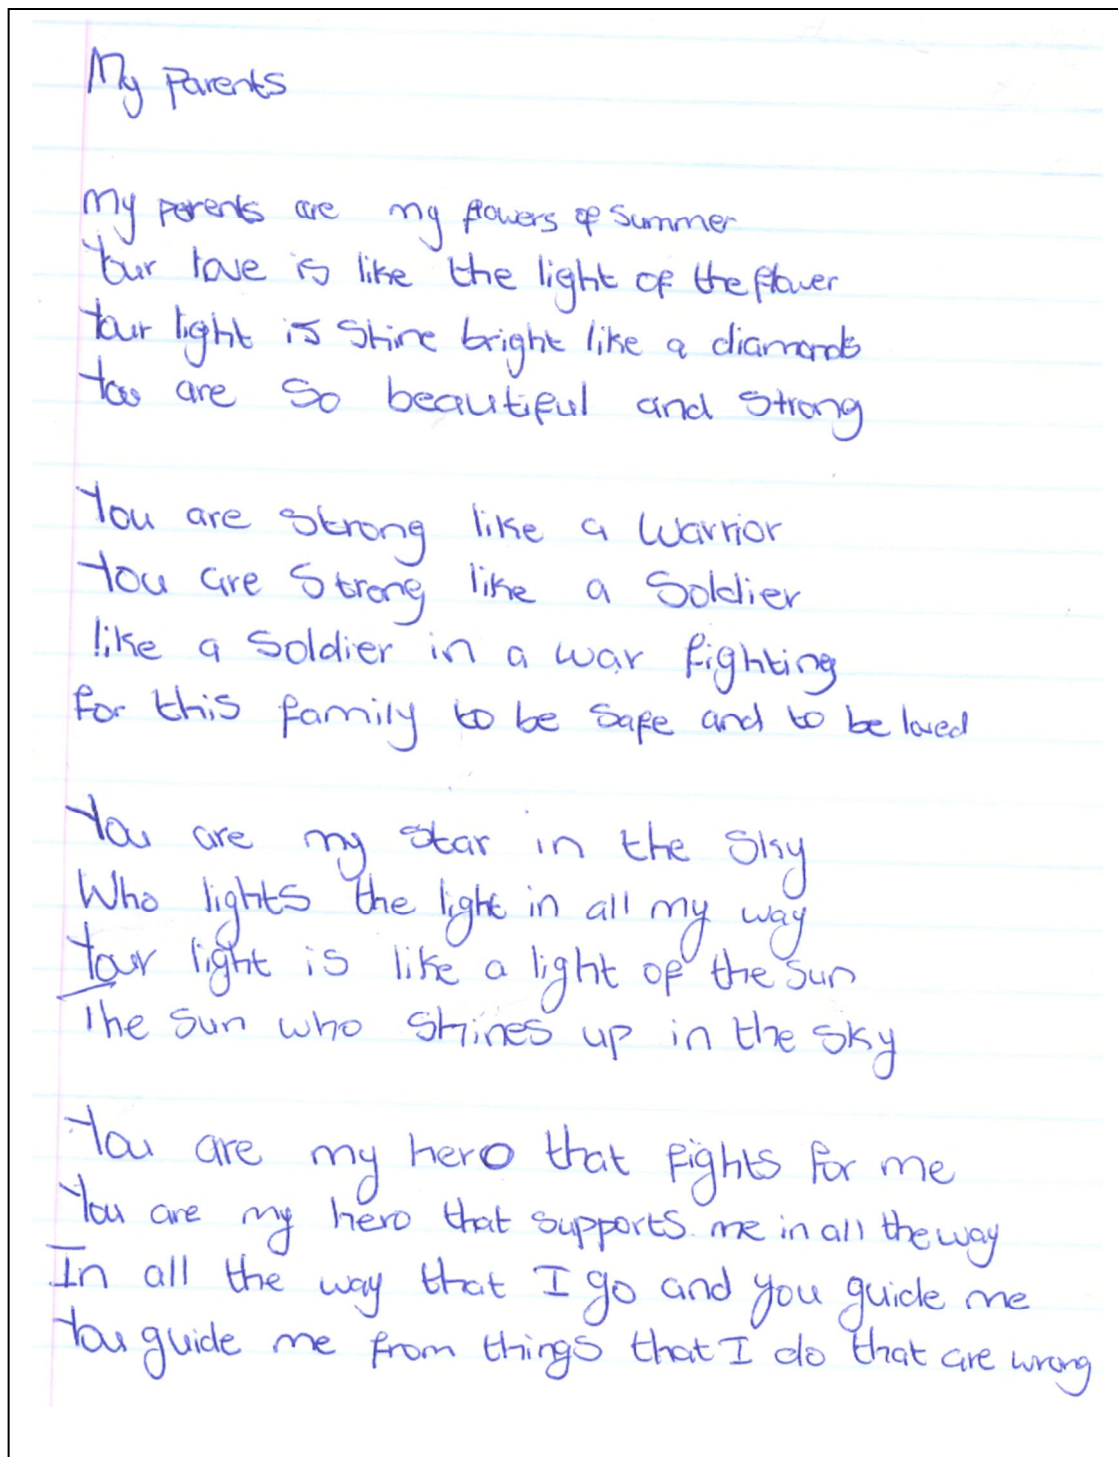 My Parents
My parents are my flowers of Summer
Your love is like the light of the flower
Your light is Shine bright like a diamonds
You are So beautiful and Strong
You are Strong like a Warrior
You are Strong like a Soldier
like a Soldier in a war fighting
for this family to be safe and to be loved
You are my star in the Sky
Who lights the light in all my way
Your light is like a light of the Sun
The Sun who Shines up in the sky
You are my hero that fights for me
You are my hero that supports me in all the way
In all the way that I go and you guide me
You guide me from things that I do that are wrong